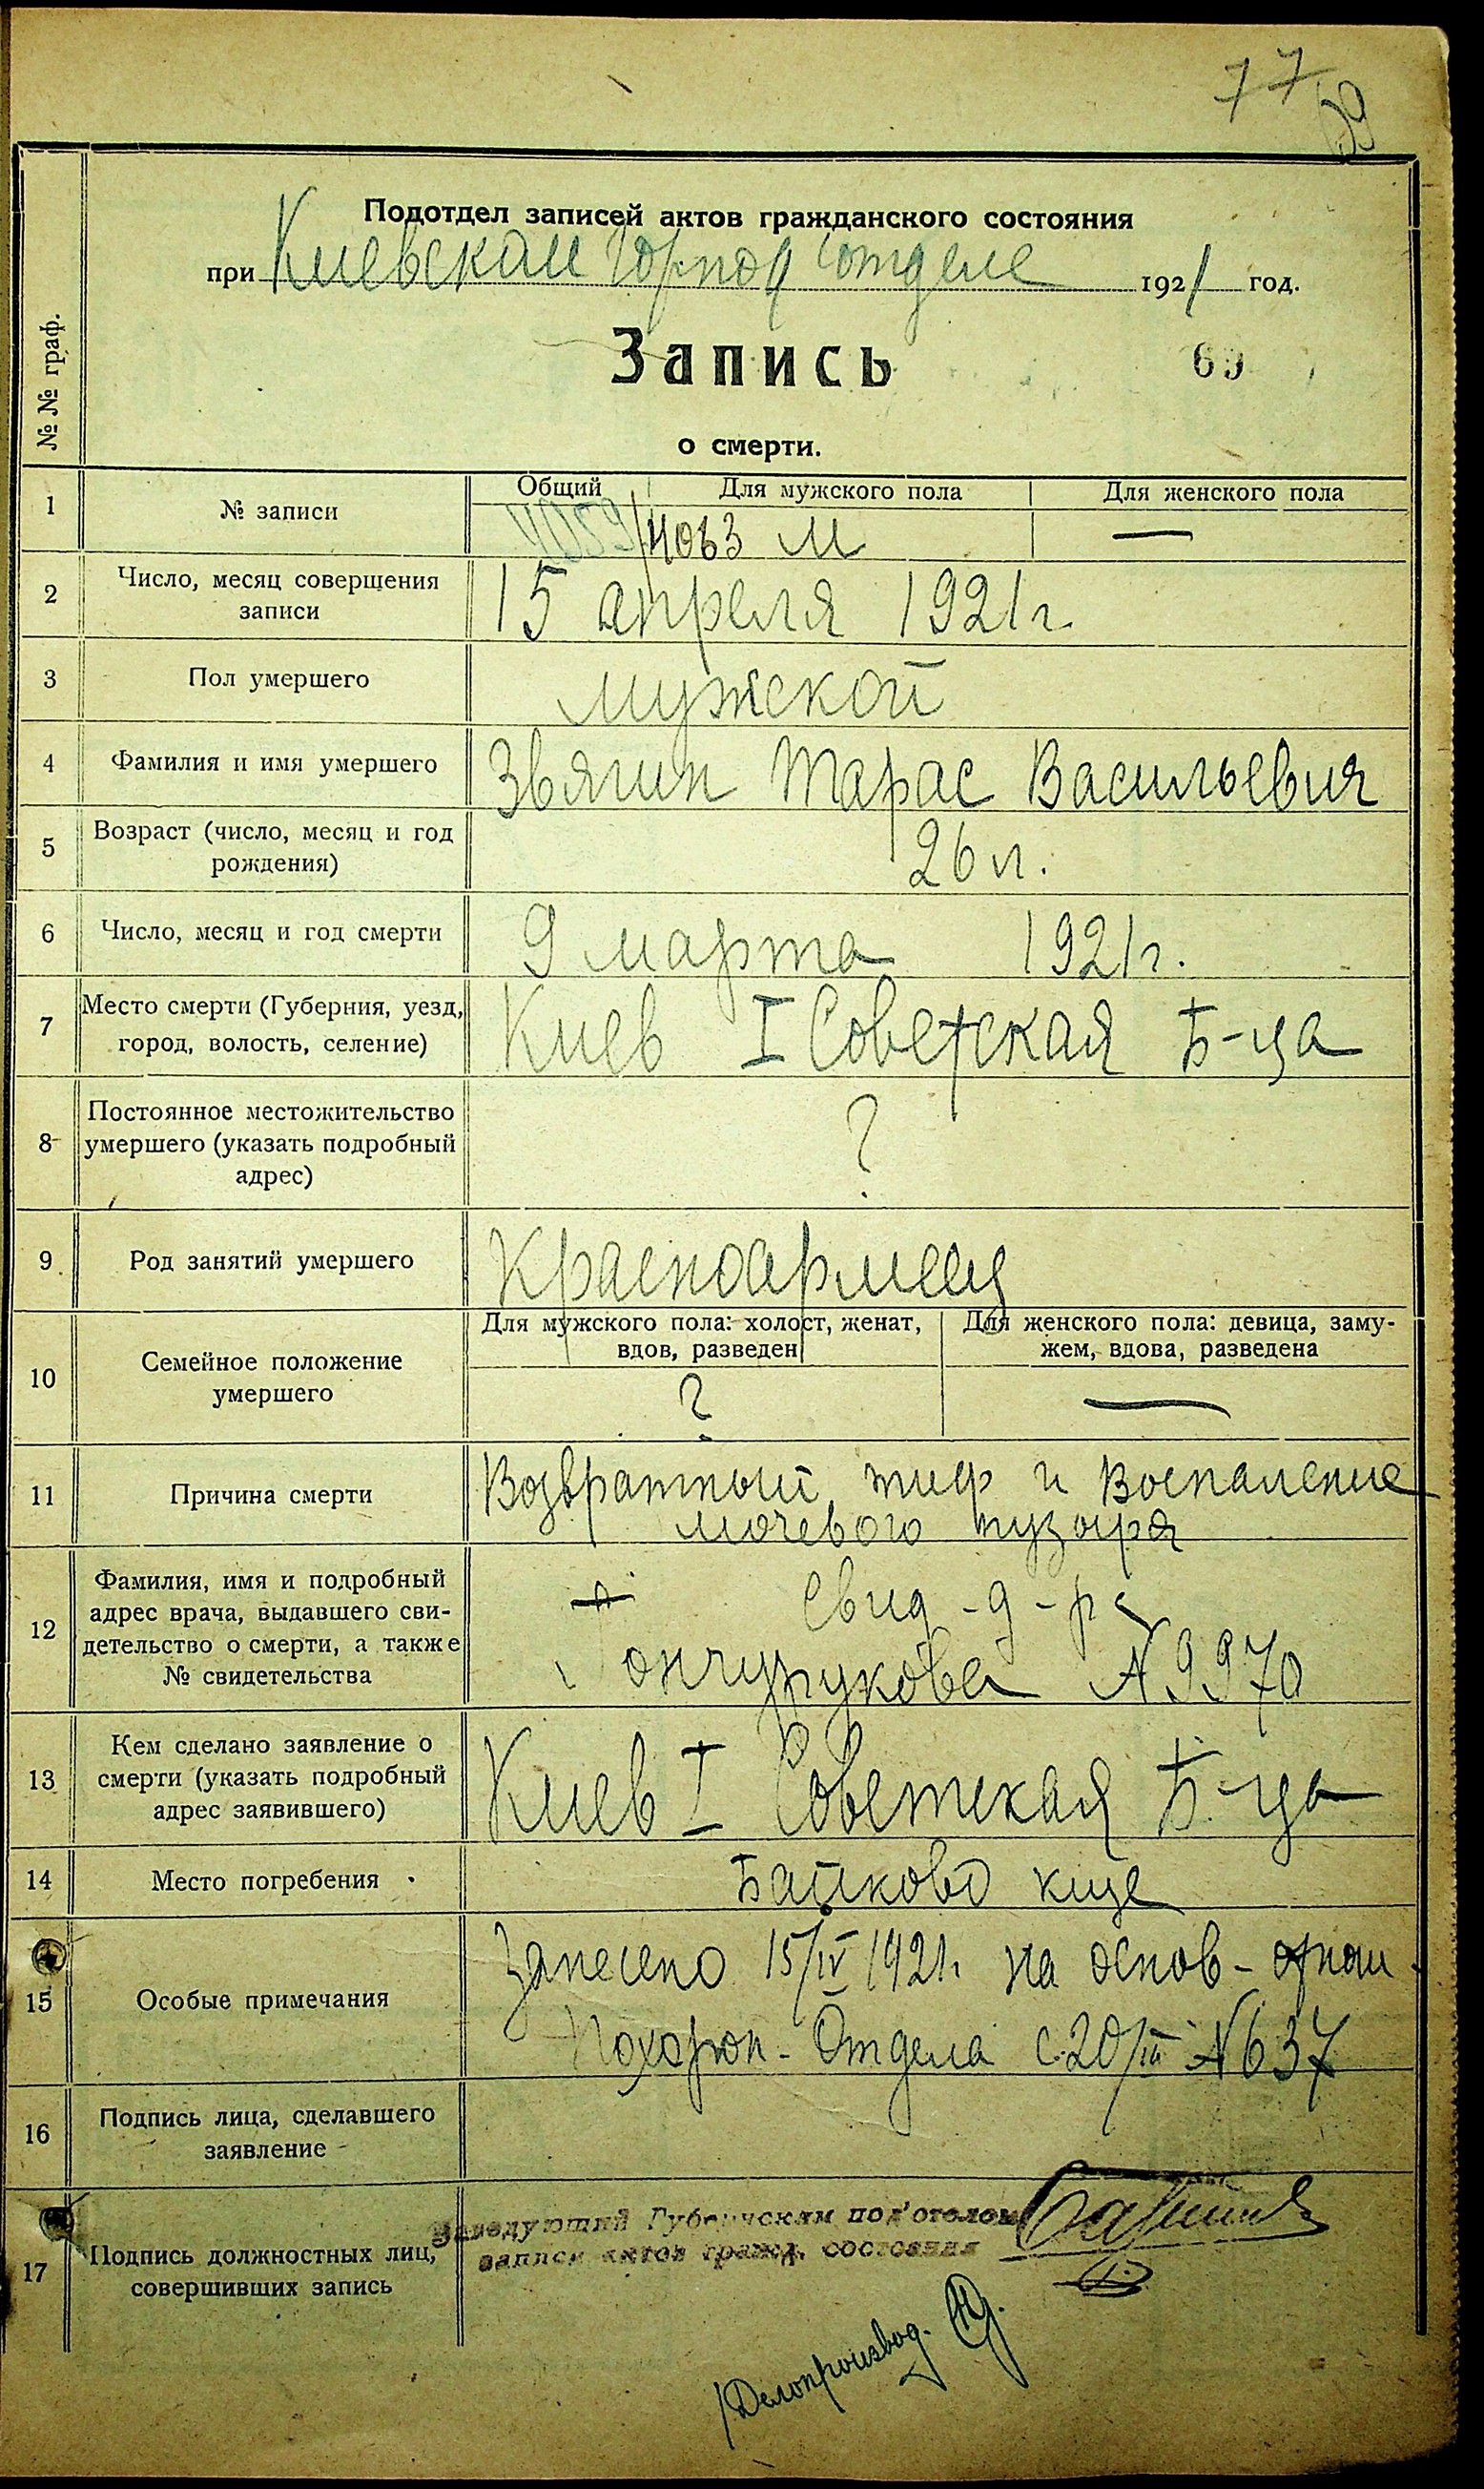 77
69
Подотдел записей актов гражданского состояния
при Киевском Горпод'отделе 1921 год.
№ № граф.
Запись
69
о смерти.
1 № записи Общий Для мужского пола Для женского пола
4059/4063 м —
2 Число, месяц совершения записи
15 апреля 1921 г.
3 Пол умершего
мужской
4 Фамилия и имя умершего
Звягин Тарас Васильевич
5 Возраст (число, месяц и год рождения)
26 л.
6 Число, месяц и год смерти
9 марта 1921 г.
7 Место смерти (Губерния, уезд, город, волость, селение)
Киев I Советская Б-ца
8 Постоянное местожительство умершего (указать подробный адрес)
?
9 Род занятий умершего
Красноармеец
10 Семейное положение умершего
Для мужского пола: холост, женат, вдов, разведен
Для женского пола: девица, замужем, вдова, разведена
? —
11 Причина смерти
Возвратный тиф и Воспаление
мочевого пузыря
12 Фамилия, имя и подробный адрес врача, выдавшего свидетельство о смерти, а также № свидетельства
Свид-д-ра
№ 9970
13 Кем сделано заявление о смерти (указать подробный адрес заявившего)
Киев I Советская Б-ца
14 Место погребения
Байково к-ще
15 Особые примечания
Занесено 15/IV 1921 г. на основ-отнош.
Похорон-Отдела с 20/III № 637
16 Подпись лица, сделавшего заявление
17 Подпись должностных лиц, совершивших запись
Заведующий Губернским под'отделом
записи актов гражд. состояния
Делопроизвод.